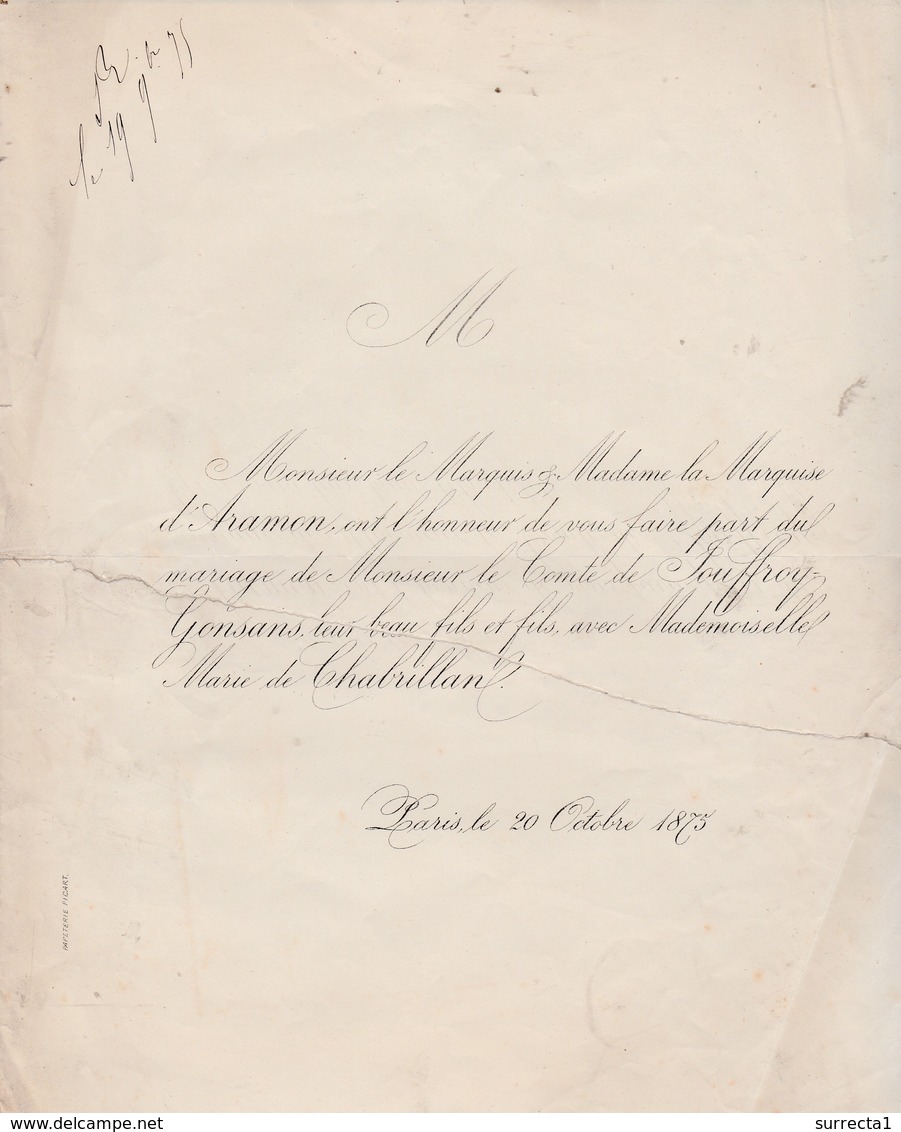 le 19 9 75
M
Monsieur le Marquis & Madame la Marquise
d'Aramon, ont l'honneur de vous faire part du
mariage de Monsieur le Comte de Jouffroy-
Gonsans, leur beau fils et fils, avec Mademoiselle
Marie de Chabrillan.
Paris, le 20 Octobre 1875
PAPETERIE PICART.
delcampe.net
surrecta1